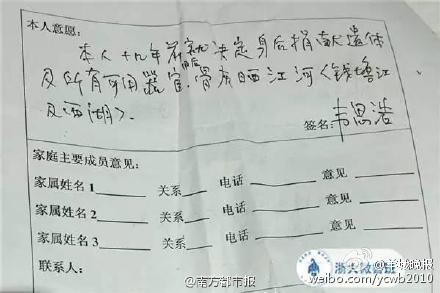 本人意愿:
本人十九年前就决定身后捐献遗体
及所有可用器官,骨灰洒江河(钱塘江
及西湖)。
签名: 韦思浩
家庭主要成员意见:
家属姓名 1 关系 电话 意见
家属姓名 2 关系 电话 意见
家属姓名 3 关系 电话 意见
联系人:
@南方都市报
weibo.com/ycwb2010